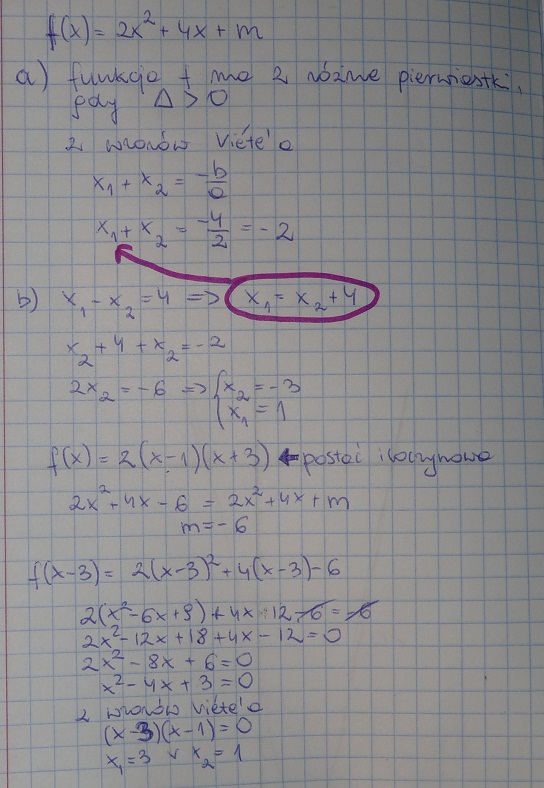 f(x) = 2x² + 4x + m
a) funkcja f ma 2 różne pierwiastki,
gdy Δ > 0
z wzorów Viéte'a
x₁ + x₂ = -b/a
x₁ + x₂ = -4/2 = -2
b) x₁ - x₂ = 4 => x₁ = x₂ + 4
x₂ + 4 + x₂ = -2
2x₂ = -6 => { x₂ = -3
x₁ = 1
f(x) = 2(x-1)(x+3) ← postać iloczynowa
2x² + 4x - 6 = 2x² + 4x + m
m = -6
f(x-3) = 2(x-3)² + 4(x-3) - 6
2(x² - 6x + 9) + 4x - 12 - 6 = -6
2x² - 12x + 18 + 4x - 12 = 0
2x² - 8x + 6 = 0
x² - 4x + 3 = 0
z wzorów Viéte'a
(x-3)(x-1) = 0
x₁ = 3 v x₂ = 1